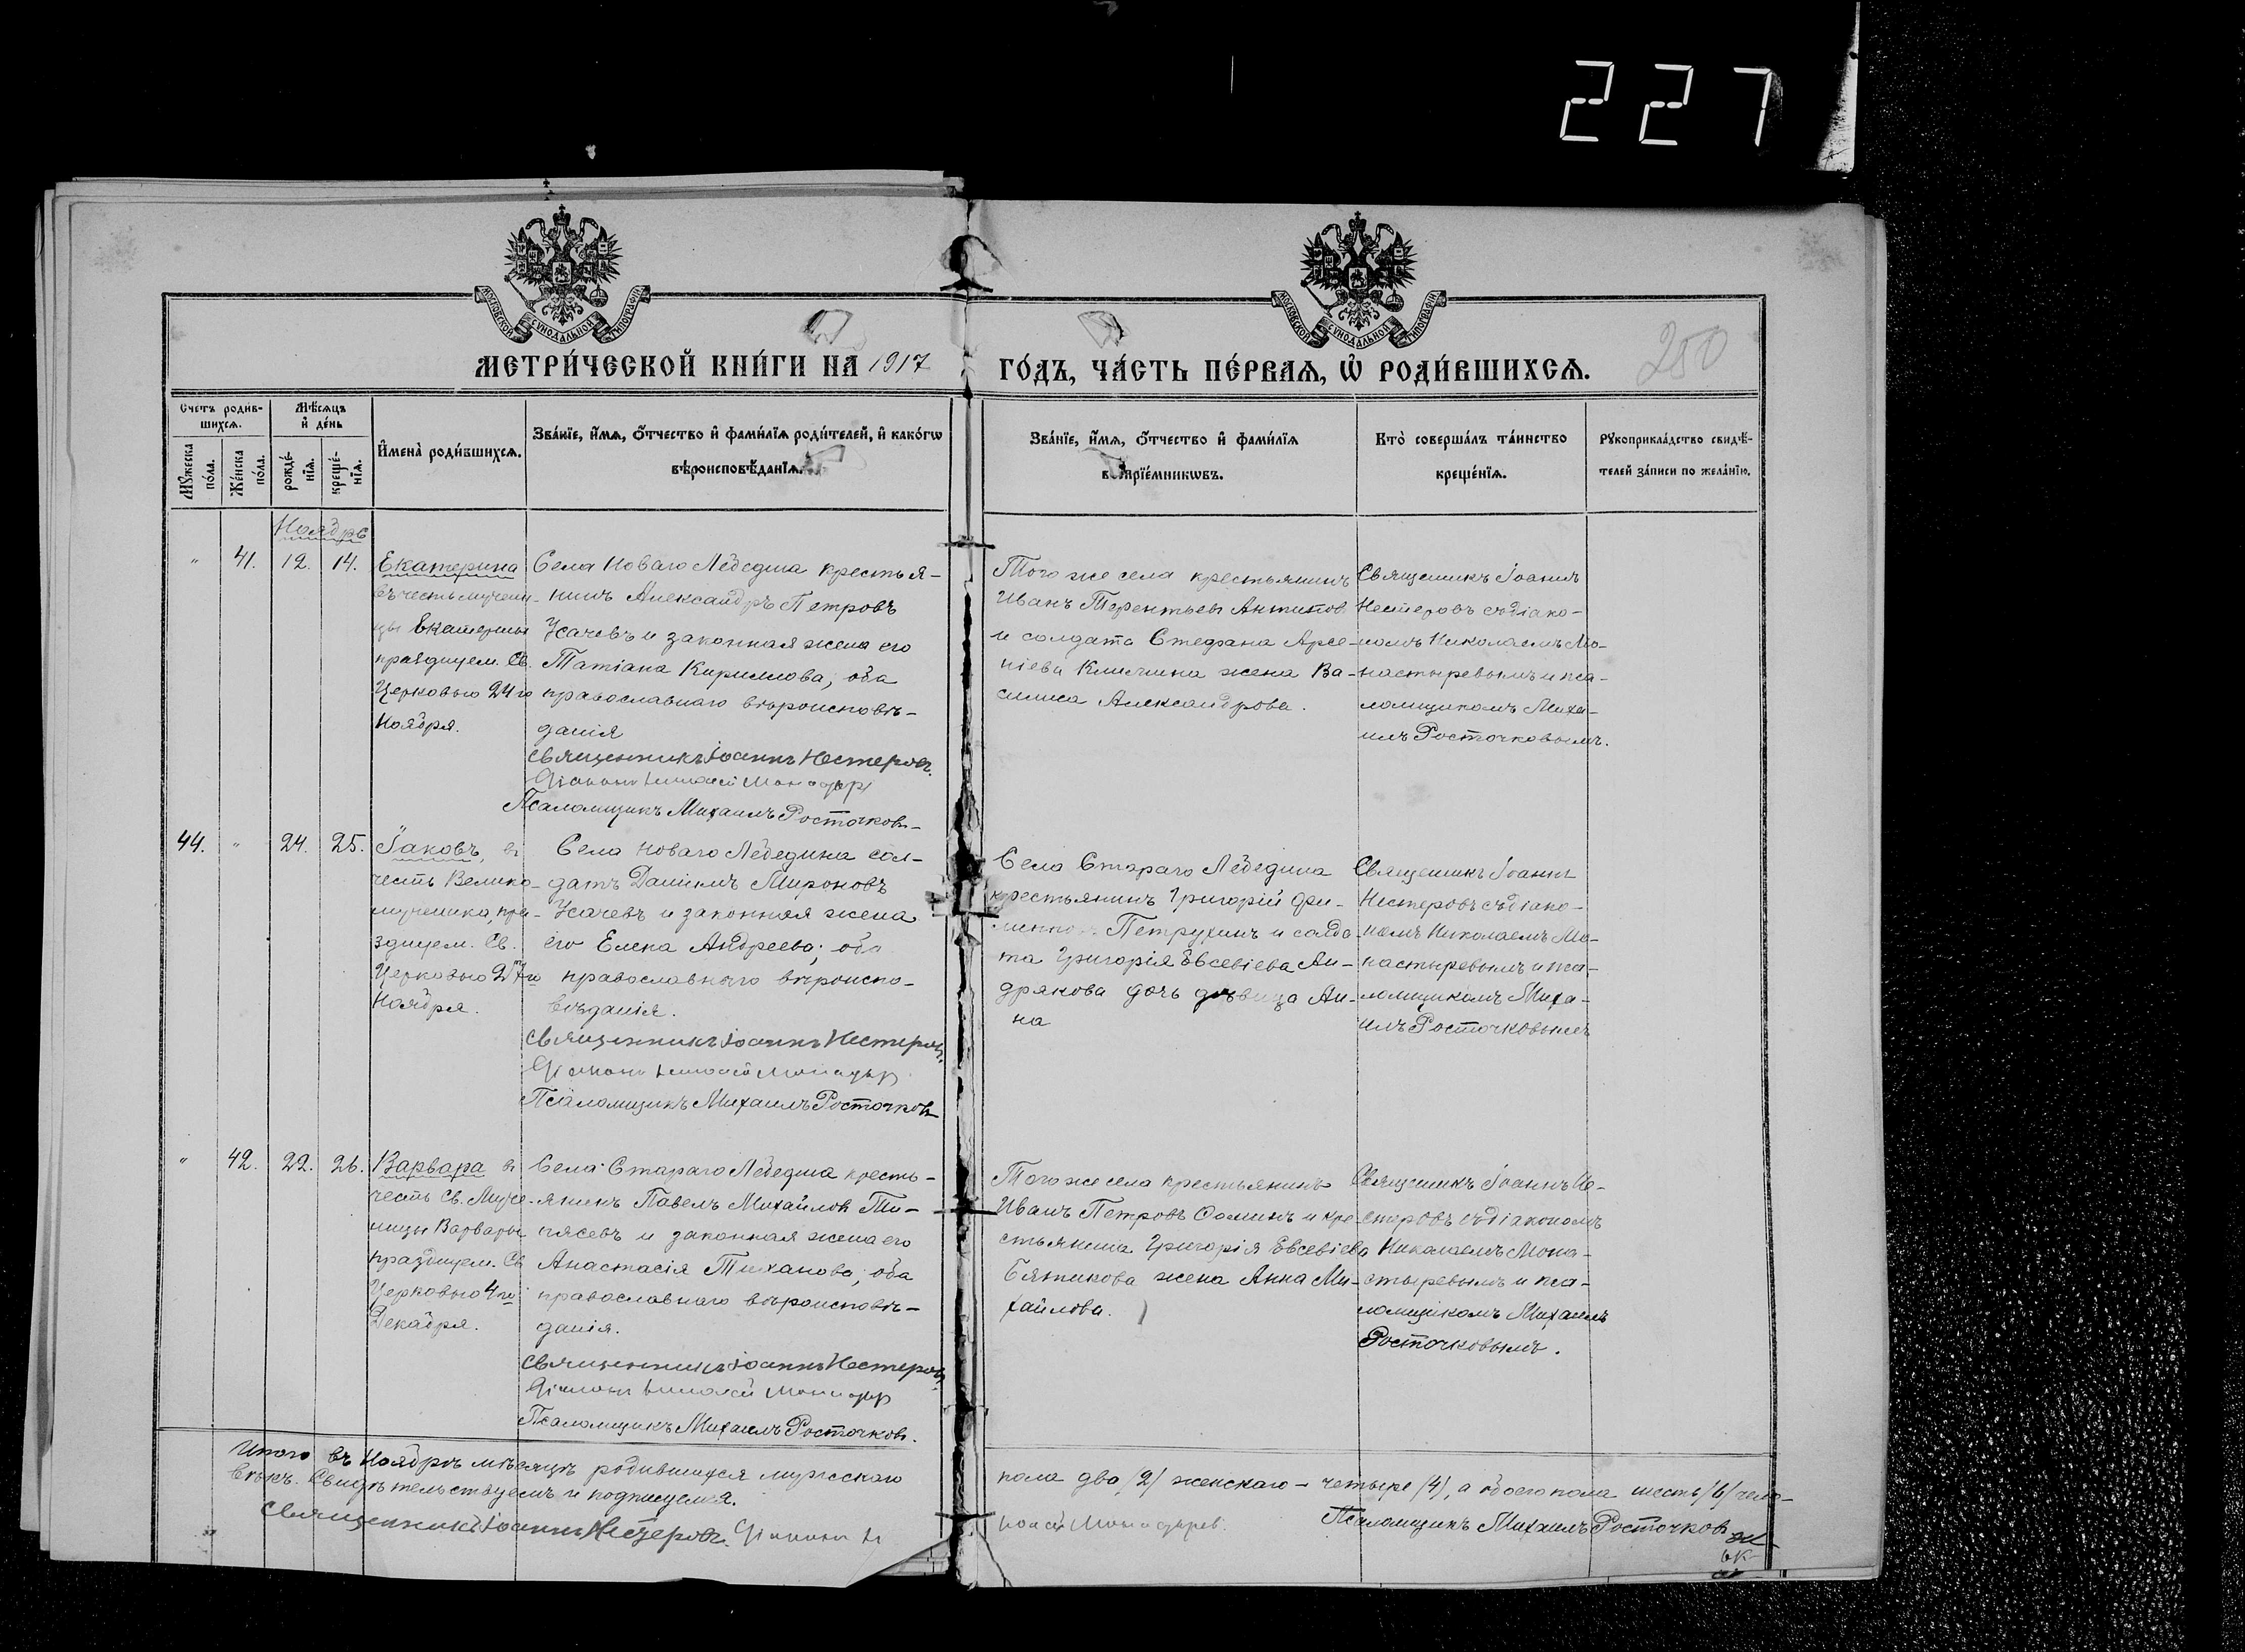 227
МОСКОВСКОЙ СУНОДАЛЬНОЙ ТИПОГРАФІИ
МОСКОВСКОЙ СУНОДАЛЬНОЙ ТИПОГРАФІИ
МЕТРИ́ЧЕСКОЙ КНИ́ГИ НА 1917
ГО́ДЪ, ЧА́СТЬ ПЕ́РВАЯ, Ѡ҆ РОДИ́ВШИХСѦ.
250
Счетъ родив-
шихсѧ.
Мѣсѧцъ
и҆ де́нь
Мꙋжеска по́ла.
Же́нска по́ла.
рожде́-
нїѧ.
креще́-
нїѧ.
И҆мена̀ роди́вшихсѧ.
Зва́нїе, и҆́мѧ, ѻ҆́тчество и҆ фами́лїѧ роди́телей, и҆ како́гѡ
вѣроисповѣ́данїѧ.
Зва́нїе, и҆́мѧ, ѻ҆́тчество и҆ фами́лїѧ
воспрїе́мникѡвъ.
Кто̀ соверша́лъ та́инство
креще́нїѧ.
Рꙋкоприкла́дство свидѣ́-
телей за́писи по жела́нїю.
Ноябрь
" 41. 12. 14.
Екатерина
въ честь мучени-
цы Екатерины
празднуем. Св.
Церковью 24го
Ноября.
Села Новаго Лебедина крестья-
нинъ Александръ Петровъ
Усачевъ и законная жена его
Татіана Кириллова, оба
православнаго вѣроисповѣ-
данія
Священникъ Іоаннъ Нестеровъ.
Діаконъ Николай Монастыр
Псаломщикъ Михаилъ Росточковъ
Того же села крестьянинъ
Иванъ Терентьевъ Антипов
и солдата Стефана Арсе-
ніева жена Ва-
силиса Александрова.
Священникъ Іоаннъ
Нестеровъ съ діако-
номъ Николаемъ Мо-
настыревымъ и пса-
ломщикомъ Миха-
иломъ Росточковымъ.
44. " 24. 25.
Іаковъ, въ
честь Велико-
мученика, пра-
зднуем. Св.
Церковью 27го
Ноября.
Села Новаго Лебедина сол-
датъ Даніилъ Мироновъ
Усачевъ и законная жена
его Елена Андреева; оба
православнаго вѣроиспо-
вѣданія.
Священникъ Іоаннъ Нестеровъ.
Діаконъ Николай Монастыр
Псаломщикъ Михаилъ Росточковъ
Села Стараго Лебедина
крестьянинъ Григорій Фи-
липповъ Петрухинъ и солда-
та Григорія Евсевіева Ан-
дрякова дочь дѣвица Ан-
на
Священникъ Іоаннъ
Нестеровъ съ діако-
номъ Николаемъ Мо-
настыревымъ и пса-
ломщикомъ Миха-
илъ Росточковымъ
" 42. 22. 26.
Варвара въ
честь Св. Муче-
ницы Варвары
празднуем. Св
Церковью 4го
Декабря.
Села Стараго Лебедина кресть-
янинъ Павелъ Михайловъ
и законная жена его
Анастасія Тиханова; оба
православнаго вѣроисповѣ-
данія.
Священникъ Іоаннъ Нестеровъ.
Діаконъ Николай Монастыр
Псаломщикъ Михаилъ Росточковъ.
Того же села крестьянинъ
Иванъ Петровъ Ѳоминъ и кре-
стьянина Григорія Евсевіева
жена Анна Ми-
хайлова.
Священникъ Іоаннъ Не-
стеровъ съ діакономъ
Николаемъ Мона-
стыревымъ и пса-
ломщикомъ Михаилъ
Росточковымъ.
Итого въ Ноябрѣ мѣсяцѣ родившихся мужескаго
пола два /2/ женскаго - четыре /4/, а обоего пола шесть /6/ чело-
вѣкъ. Свидѣтельствуемъ и подписуемся.
Священникъ Іоаннъ Нестеровъ. Діаконъ Ни
колай Монастырев.
Псаломщикъ Михаилъ Росточков